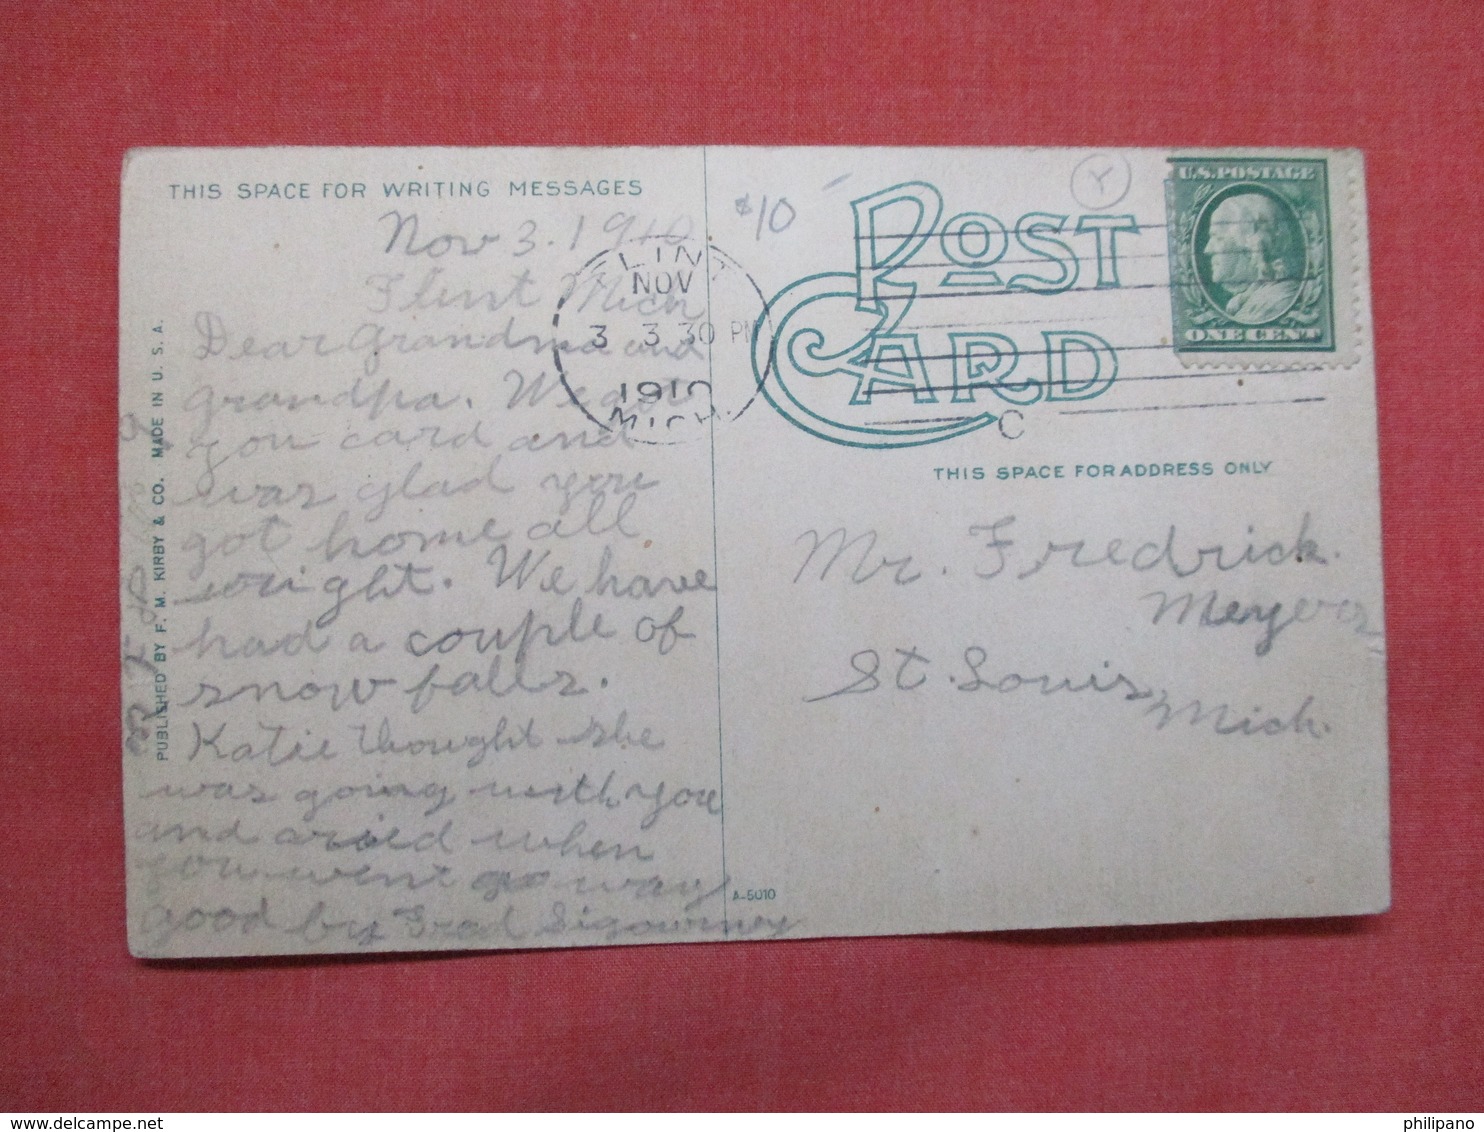 THIS SPACE FOR WRITING MESSAGES
Nov 3. 1910.
Flint Mich
Dear Grandma and
grandpa. We got
you card and
was glad you
got home all
wright. We have
had a couple of
snow falls.
Katie thought she
was going with you
and cried when
you went a way
good by Fred Sigowrney
PUBLISHED BY F. M. KIRBY & CO. MADE IN U. S. A.
FLINT
NOV
3 3 30 PM
1910
MICH.
$10
Y
POST
CARD
C
U.S. POSTAGE
ONE CENT
THIS SPACE FOR ADDRESS ONLY
Mr. Fredrick.
Meyers
St. Louis
Mich.
A-5010
philipano